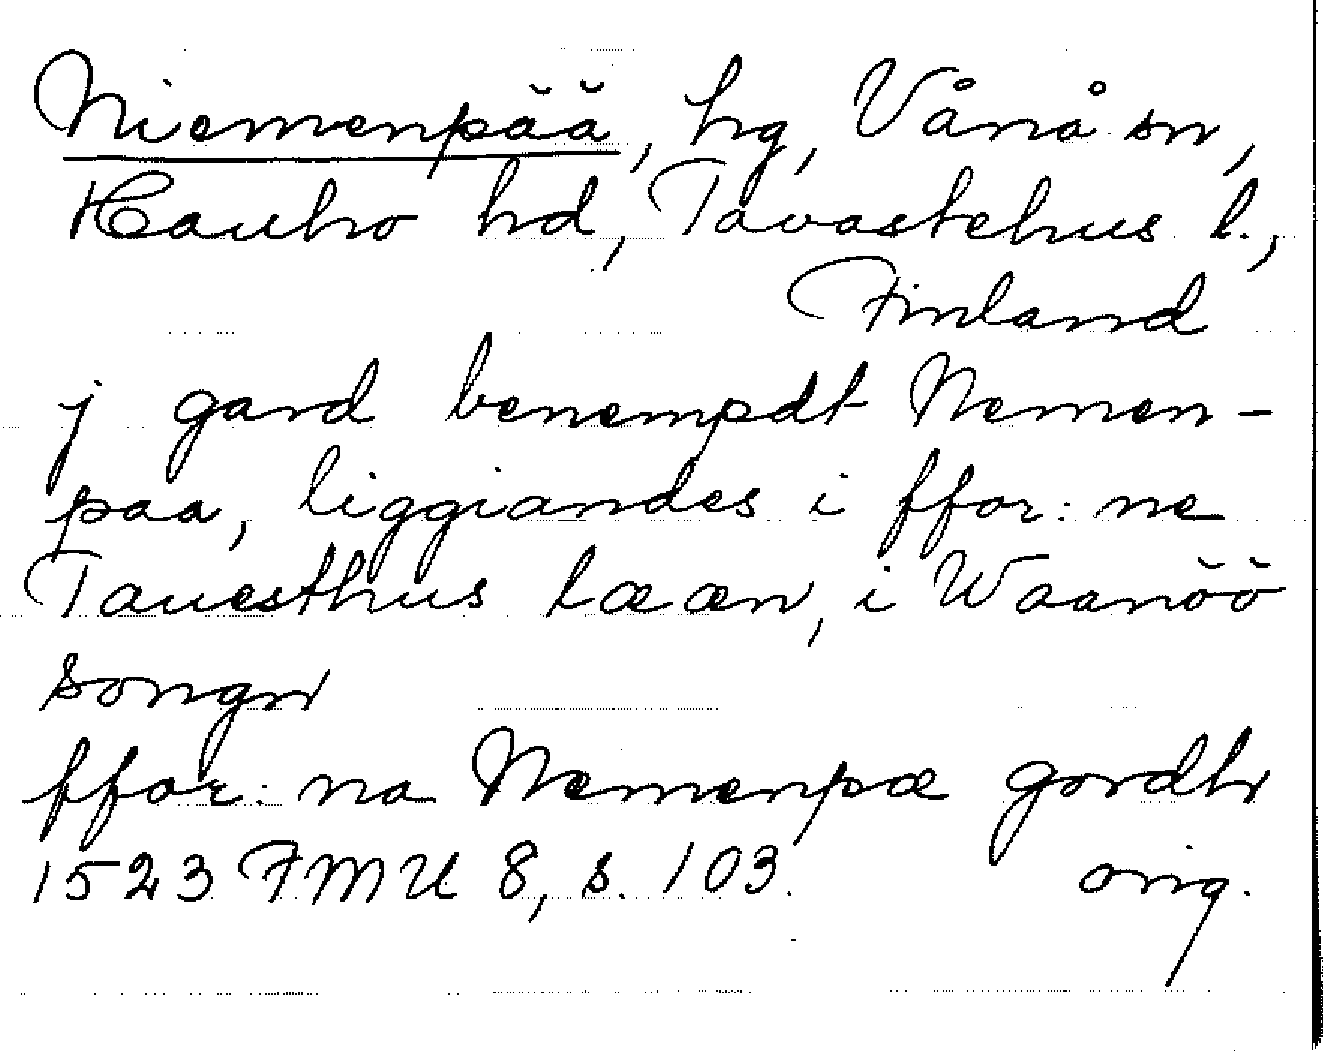 Niemenpää, hg, Vånå sn,
Hauho hd, Tavastehus l.,
Finland
j gard benempdt Nemen-
paa, liggiandes i ffor: ne
Tauesthus lææn, i Waanöö
songn
ffor: na Nemenpæ gordh
1523 FMU 8, s. 103. orig.